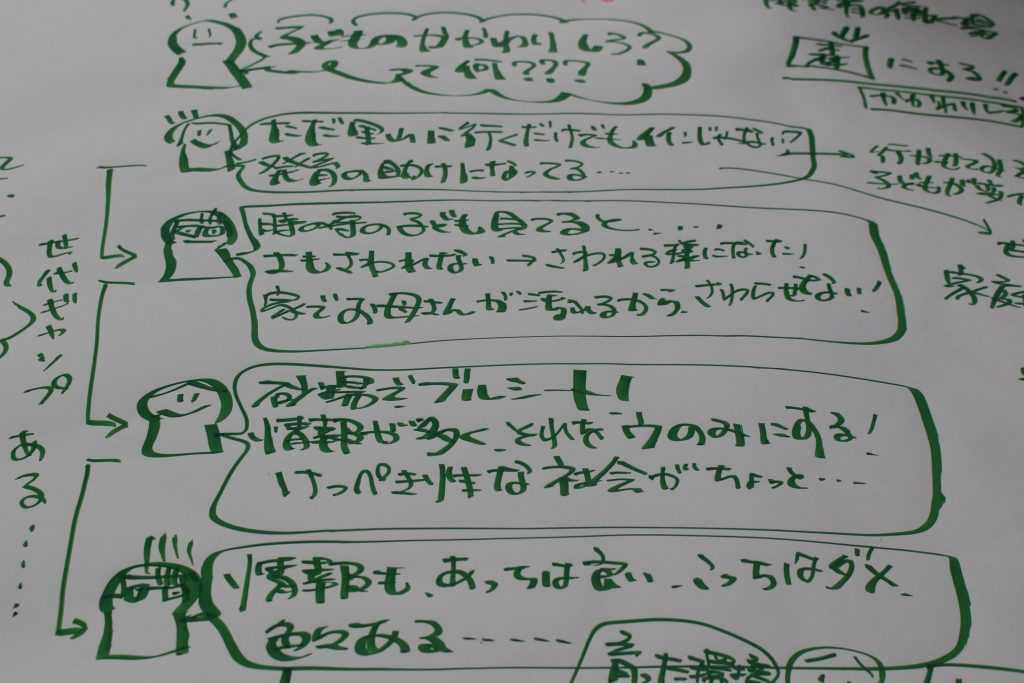 ? ?
子どものかかわりしろ?
って何???
の働く場
森 にある!!
かかわりしろ
ただ里山に行くだけでもイインじゃない?
発育の助けになってる‥‥
行かせてみる
子どもが変
時の寺の子ども見てると‥‥
土もさわれない→さわれる様になった!
家でお母さんが汚れるから、さわらせない!
家庭
世代ギャップ
ある‥‥‥
砂場でブルーシート!
情報が多く、それをウのみにする!
けっぺき性な社会がちょっと‥‥
情報も、あっちは良い、こっちはダメ、
色々ある‥‥‥
育った環境